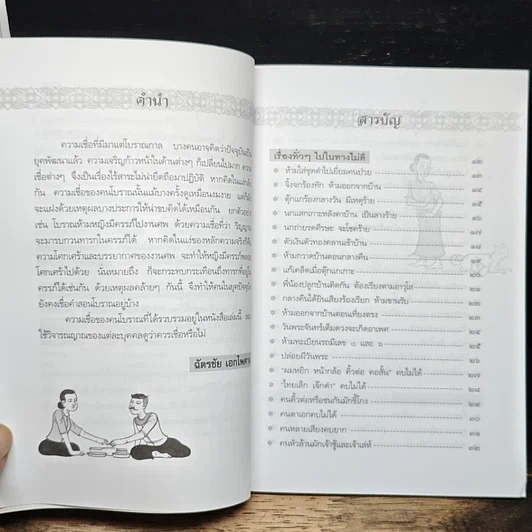 คำนำ
ความเชื่อที่มีมาแต่โบราณกาล บางคนอาจคิดว่าปัจจุบันเป็น
ยุคพัฒนาแล้ว ความเจริญก้าวหน้าในด้านต่างๆ ก็เปลี่ยนไปมาก ความ
เชื่อต่างๆ จึงเป็นเรื่องไร้สาระไม่น่ายึดถือมาปฏิบัติ หากคิดในแง่
กัน ความเชื่อของคนโบราณนั้นแม้บางครั้งดูเหมือนงมงาย แต่ก็
จะแฝงด้วยเหตุผลบางประการให้น่าขบคิดได้เหมือนกัน ยกตัวอย่าง
เช่น โบราณห้ามหญิงมีครรภ์ไปงานศพ ด้วยความเชื่อที่ว่า วิญญาณ
จะมารบกวนทารกในครรภ์ได้ หากคิดในแง่ของหลักความจริงก็
ความโศกเศร้าและบรรยากาศของงานศพ จะทำให้หญิงมีครรภ์
โศกเศร้าไปด้วย นั่นหมายถึง ก็จะกระทบกระเทือนถึงทารก
ครรภ์ได้เช่นกัน ด้วยเหตุผลคล้ายๆ กันนี้ จึงทำให้คนในยุคปัจจุบัน
ยังคงเชื่อคำสอนโบราณอยู่บ้าง
ความเชื่อของคนโบราณที่ได้รวบรวมอยู่ในหนังสือเล่มนี้
ใช้วิจารณญาณของแต่ละบุคคลดูว่าควรเชื่อหรือไม่
ฉัตรชัย
สารบัญ
เรื่องทั่วๆ ไปในทางไม่ดี ๑๒
ห้ามใส่ชุดดำไปเยี่ยมคนป่วย ๑๓
จิ้งจกร้องทัก ห้ามออกจากบ้าน ๑๔
ตุ๊กแกร้องกลางวัน มีเหตุร้าย ๑๕
นกแสกเกาะหลังคาบ้าน เป็นลางร้าย ๑๖
นกถ่ายรดศีรษะ จะโชคร้าย ๑๗
ตัวเงินตัวทองคลานเข้าบ้าน ๑๘
ห้ามกวาดบ้านตอนกลางคืน ๑๙
แก้เคล็ดเมื่อตุ๊กแกเกาะ ๒๐
พี่น้องปลูกบ้านติดกัน ต้องเรียงตามอาวุโส ๒๑
กลางคืนได้ยินเสียงร้องเรียก ห้ามขานรับ ๒๒
ห้ามออกจากบ้านตอนเที่ยงตรง ๒๓
วันพระจันทร์เต็มดวงจะเกิดอาเพศ ๒๔
ห้ามทะเบียนรถมีเลข ๐ และ ๖ ๒๕
ปล่อยผีวันพระ ๒๖
"ผมหยิก หน้ากล้อ คิ้วต่อ คอสั้น" คบไม่ได้ ๒๗
"ไทยเล็ก เจ๊กดำ" คบไม่ได้ ๒๘
คนคิ้วต่อหรือชนกันมักขี้โกง ๒๙
คนตาเอกคบไม่ได้ ๓๐
คนหลายเสียงคบยาก ๓๑
คนหัวล้านมักเจ้าชู้และเจ้าเล่ห์ ๓๒